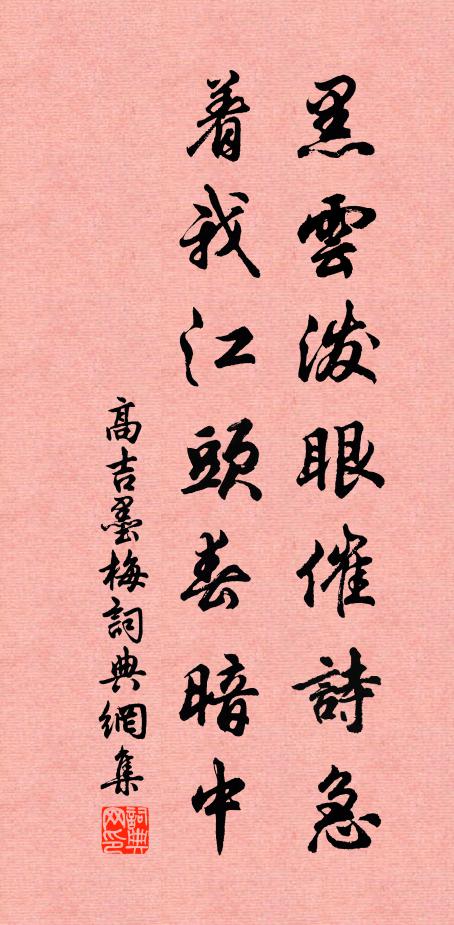 黑雲潑眼催詩急
着我江頭春暗中
高吉墨梅詞典網集
詞典网印